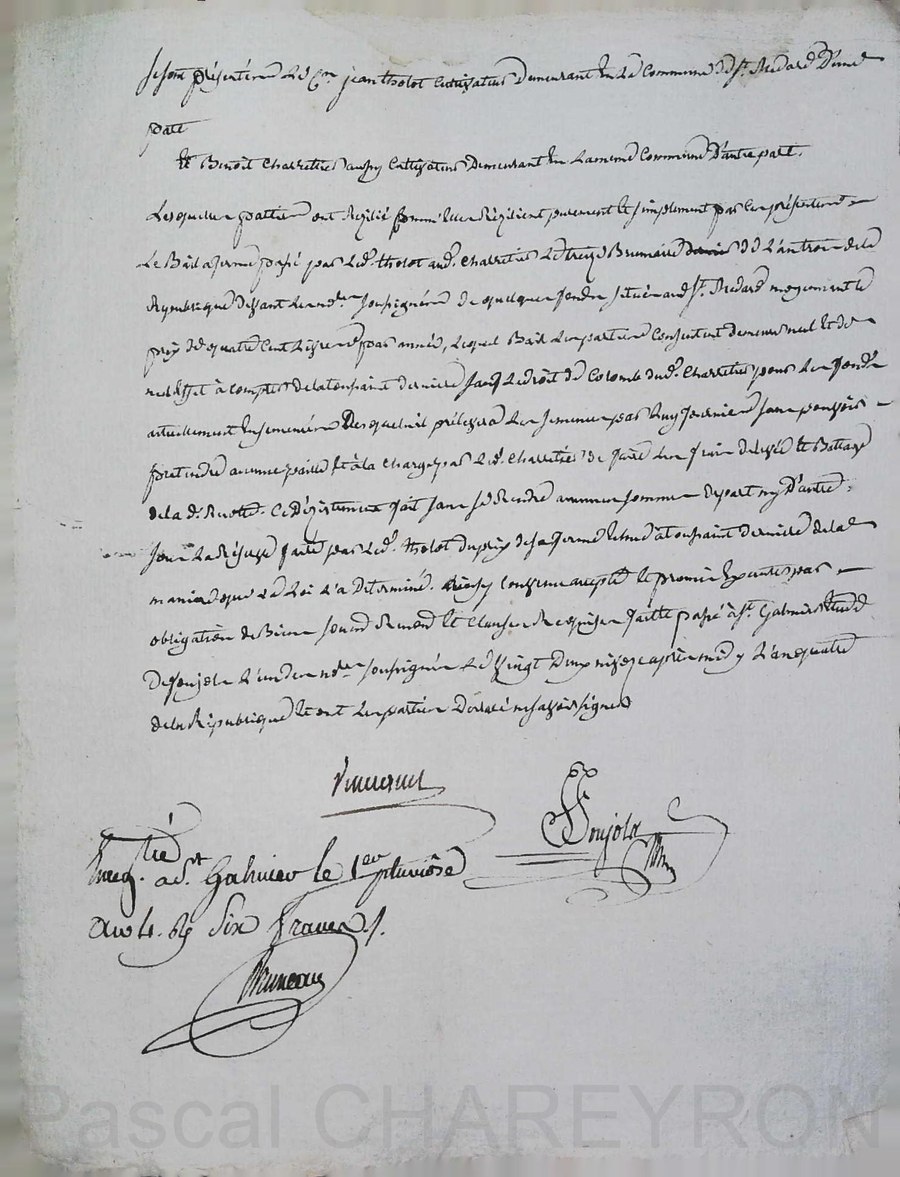 Se sont présentés le Cen jean tholot Cultivateur demeurant en la Commune de St. Medard D'une
part
Et Benoit Charretier aussy Cultivateur Demeurant en la meme Commune D'autre part.
Lesquelles parties ont Rézilié comme elles Rézilient purement et simplement par les présentes
Le Bail a ferme passé par led. tholot aud. Charretier Le treize Brumaire de L'an trois de la
République devant les notres soussignés de quelques fonds situés aud St. Medard moyennant le
prix de quatre cent Livres par année, Lequel Bail Les parties Consentent demeurer nul et de
nul effet à compter de la toussaint derniere sauf Le droit de Colon dud. Charretier pour Les fonds
actuellement ensemencés Desquels il prélevera Les semences par luy fournies sans pouvoir
pretendre aucune paille et à la Charge par led. Charretier de faire Les frais de levée et Battage
de la d. Recolte. Ce Dézistement fait sans se Rendre aucunes sommes de part ny D'autre
sous La Réserve faite par led. tholot du prix de sa ferme échue a toussaint derniere de la
maniere que La Loi L'a déterminé. Ainsy convenu accepté et promis exécuter par
obligation de Biens soumissions et Clauses Requises fait et passé à St. Galmier Etude
De soujols L'un des notres soussignés Le vingt Deux nivose après midy L'an quatre
de la République et ont Les parties Déclaré ne savoir signer
Vincent
Soujols
Enreg.tré a St Galmier le 1er pluviôse
an 4. Rç Six francs
Bruneau
Pascal CHAREYRON